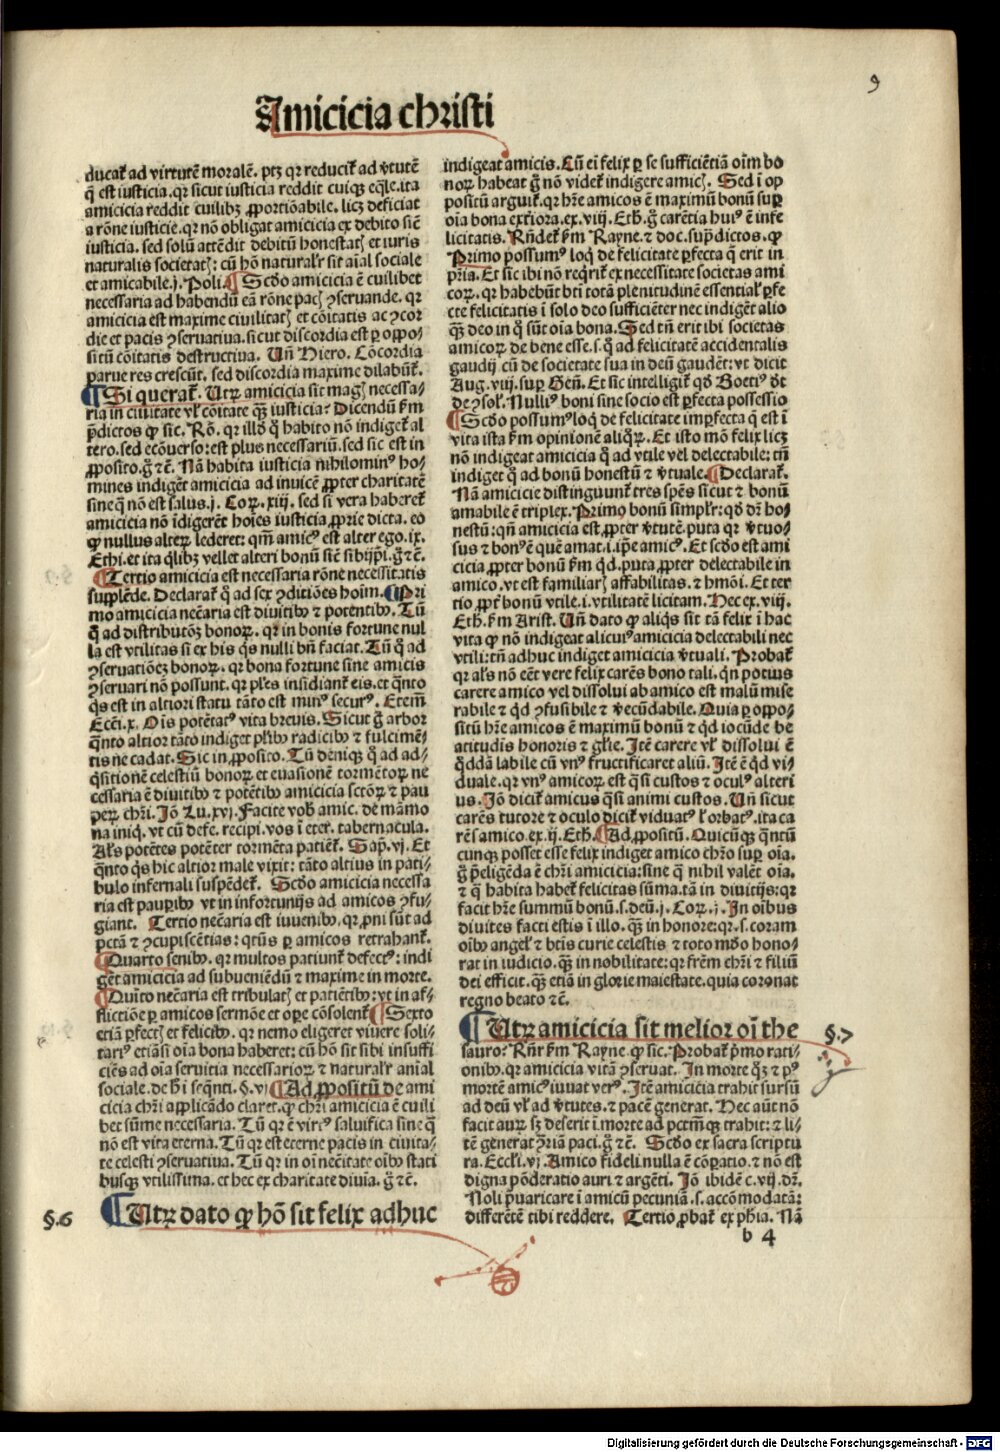 9
Amicicia christi
ducat᷑ ad virtutē moralē. ptꝫ qꝛ reducit᷑ ad ꝟtutē
q̄ est iusticia. qꝛ sicut iusticia reddit cuiqꝫ eq̄le. ita
amicicia reddit cuilibꝫ ꝓportiōabile. licꝫ deficiat
a rōne iusticie. qꝛ nō obligat amicicia ex debito siē
iusticia. sed solū attēdit debitū honestatꝭ et iuris
naturalis societatꝭ: cū hō natural'r sit aīal sociale
et amicabile. j. Poli. ¶ Scd̄o amicicia ē cuilibet
necessaria ad habendū eā rōne pacꝭ ꝯseruande. qꝛ
amicicia est maxime ciuilitatꝭ et cōitatis ac ꝯcor
die et pacis ꝯseruatiua. sicut discordia est ꝑ oppo⸗
sitū cōitatis destructiua. Vn̄ Hiero. Cōcordia
parue res crescūt. sed discordia maxime dilabūt᷑.
¶ Si querat᷑. Vtꝝ amicicia sit magꝭ necessa⸗
ria in ciuitate vl' cōitate qꝫ iusticia? Dicendū ẜm
p̄dictos ꝙ sic. Rō. qꝛ illd̓ q̄ habito nō indiget᷑ al
tero. sed ecōuerso: est plus necessariū. sed sic est in
ꝓposito. g̊ ⁊c̄. Nā habita iusticia nihilominꝰ ho⸗
mines indigēt amicicia ad inuicē ꝓpter charitatē
sine q̄ nō est salus. j. Coꝝ. xiij. sed si vera haberet᷑
amicicia nō īdigerēt hoīes iusticia ꝓprie dicta. eo
ꝙ nullus alteꝝ lederet: qm̄ amicꝰ est alter ego. ix.
Ethi. et ita q̄libꝫ vellet alteri bonū siē sibijpi. g̊ ⁊c̄.
¶ Tertio amicicia est necessaria rōne necessitatis
supplēde. Declarat᷑ q̄ ad sex ꝯditiōes hoīm. ¶ Pri
mo amicicia necāria est diuitibꝰ ⁊ potentibꝰ. Tū
q̄ ad distributōꝫ bonoꝝ. qꝛ in bonis fortune nul
la est vtilitas si ex his q̄s nulli bn̄ faciat. Tū q̄ ad
ꝯseruatiōeꝫ bonoꝝ. qꝛ bona fortune sine amicis
ꝯseruari nō possunt. qꝛ pl'es insidiant᷑ eis. et q̄nto
q̄s est in altiori statu tāto est minꝰ securꝰ. Etem̄
Ecci. x. Oīs potētatꝰ vita breuis. Sicut g̊ arbor
q̄nto altior tāto indiget pl'ibꝰ radicibꝰ ⁊ fulcimē⸗
tis ne cadat. Sic in ꝓposito. Tū deniqꝫ q̄ ad ad⸗
q̄sitionē celestiū bonoꝝ et euasionē tormētoꝝ ne
cessaria ē diuitibꝰ ⁊ potētibꝰ amicicia sctōꝝ ⁊ pau
peꝝ chr̄i. Jō Lu. xvj. Facite vob̓ amic. de māmo
na iniq̄. vt cū defe. recipi. vos ī eter. tabernacula.
Al's potētes potēter tormēta patiēt᷑. Sap. vj. Et
q̄nto q̄s hic altior male vixit: tāto altius in pati⸗
bulo infernali suspēdet᷑. Scd̄o amicicia necessa
ria est pauꝑibꝰ vt in infortunijs ad amicos ꝯfu⸗
giant. Tertio necāria est iuuenibꝰ. qꝛ ꝓni sūt ad
pctā ⁊ ꝯcupiscētias: qtūs ꝑ amicos retrahant᷑.
¶ Quarto senibꝰ. qꝛ multos patiunt᷑ defectꝰ: indi
gēt amicicia ad subueniēdū ⁊ maxime in morte.
¶ Quīto necāria est tribulatꝭ et patiētibꝰ: vt in af⸗
flictiōe ꝑ amicos sermōe et oꝑe cōsolent᷑. ¶ Sexto
etiā ꝑfectꝭ et felicibꝰ. qꝛ nemo eligeret viuere soli⸗
tariꝰ etiāsi oīa bona haberet: cū hō sit sibi insuffi
ciēs ad oīa seruitia necessarioꝝ ⁊ natural'r anīal
sociale. de h̓i seq̄nti. §. vj ¶ Ad ꝓpositū de ami
cicia chr̄i applicādo claret. ꝙ chr̄i amicicia ē cuili
bet sūme necessaria. Tū qꝛ ē virꝰ saluifica sine q̄
nō est vita eterna. Tū qꝛ est eterne pacis in ciuita⸗
te celesti ꝯseruatiua. Tū qꝛ in oī necītate oībꝰ stati
busqꝫ vtilissima. et hec ex charitate diuīa. g̊ ⁊c̄.
§.6 ¶ Vtꝝ dato ꝙ hō sit felix adhuc
indigeat amicis. Cū ei felix ꝑ se sufficiētiā oīm bo
noꝝ habeat g̊ nō videt᷑ indigere amicꝭ. Sed ī op
positū arguit᷑. qꝛ hr̄e amicos ē maximū bonū suꝑ
oīa bona ext'iora. ex. viij. Eth. g̊ carētia huiꝰ ē infe
licitatis. Rn̄det᷑ ẜm Rayne. ⁊ doc. sup̄dictos. ꝙ
Primo possumꝰ loq̄ de felicitate ꝑfecta q̄ erit in
pr̄ia. Et sic ibi nō req̄rit᷑ ex necessitate societas ami
coꝝ. qꝛ habebūt bt̄i totā plenitudinē essential' ꝑfe
cte felicitatis ī solo deo sufficiēter nec indigēt alio
qꝫ deo in q̄ sūt oīa bona. Sed tn̄ erit ibi societas
amicoꝝ de bene esse. s. q̄ ad felicitatē accidentalis
gaudij cū de societate sua in deū gaudēt: vt dicit
Aug. viij. suꝑ Gen̄. Et sic intelligit᷑ qd̓ Boetiꝰ d̓t
de ꝯsol'. Nulliꝰ boni sine socio est ꝑfecta possessio
¶ Scd̄o possumꝰ loq̄ de felicitate imꝑfecta q̄ est ī
vita ista ẜm opinionē aliq̄ꝝ. Et isto mō felix licꝫ
nō indigeat amicicia q̄ ad vtile vel delectabile: tn̄
indiget q̄ ad bonū honestū ⁊ ꝟtuale. ¶ Declarat᷑.
Nā amicicie distinguunt᷑ tres spēs sicut ⁊ bonū
amabile ē triplex. Primo bonū simpl'r: qd̓ dr̄ ho⸗
nestū: qn̄ amicicia est ꝓpter ꝟtutē puta qꝛ ꝟtuo⸗
sus ⁊ bonꝰ ē quē amat. i. ip̄e amicꝰ. Et scd̄o est ami
cicia ꝓpter bonū ẜm q̄d. puta ꝓpter delectabile in
amico. vt est familiarꝭ affabilitas. ⁊ hmōi. Et ter
tio ꝓpt᷑ bonū vtile. i. vtilitatē licitam. Hec ex. viij.
Eth. ẜm Arist. Vn̄ dato ꝙ aliq̄s sit tā felix ī hac
vita ꝙ nō indigeat alicuiꝰ amicicia delectabili nec
vtili: tn̄ adhuc indiget amicicia ꝟtuali. Probat᷑
qꝛ al's nō eēt vere felix carēs bono tali. q̄n potius
carere amico vel dissolui ab amico est malū mise
rabile ⁊ q̄d ꝯfusibile ⁊ ꝟecūdabile. Quia ꝑ oppo⸗
sitū hr̄e amicos ē maximū bonū ⁊ q̄d iocūde be
atitudis honoris ⁊ gl'ie. Jtē carere vl' dissolui ē
q̄ddā labile cū vnꝰ fructificaret aliū. Jtē ē q̄d vi⸗
duale. qꝛ vnꝰ amicoꝝ est q̄si custos ⁊ oculꝰ alteri
us. Jō dicit᷑ amicus q̄si animi custos. Vn̄ sicut
carēs tutore ⁊ oculo dicit᷑ viduatꝰ l' orbatꝰ. ita ca
rēs amico. ex. ij. Eth. ¶ Ad ꝓpositū. Quicūqꝫ q̄ntū
cunqꝫ posset esse felix indiget amico chr̄o suꝑ oīa.
g̊ p̄eligēda ē chr̄i amicicia: sine q̄ nihil valēt oīa.
⁊ q̄ habita habet᷑ felicitas sūma. tā in diuitijs: qꝛ
facit hr̄e summū bonū. s. deū. j. Coꝝ. j. Jn oībus
diuites facti estis ī illo. qꝫ in honore: qꝛ. s. coram
oībꝰ angel' ⁊ bt̄is curie celestis ⁊ toto mūdo hono⸗
rat in iudicio. qꝫ in nobilitate: qꝛ fr̄em chr̄i ⁊ filiū
dei efficit. qꝫ etiā in glorie maiestate. quia coronat
regno beato ⁊c̄.
¶ Vtꝝ amicicia sit melior oī the §.7
sauro? Rn̄r ẜm Rayne. ꝙ sic. Probat᷑ p̄mo rati⸗
onibꝰ. qꝛ amicicia vitā ꝯseruat. Jn morte qꝫ ⁊ pꝰ
mortē amicꝰ iuuat verꝰ. Jtē amicicia trahit sursū
ad deū vl' ad ꝟtutes. ⁊ pacē generat. Hec aūt nō
facit auꝝ sꝫ deserit ī morte ad pctm̄qꝫ trahit: ⁊ li⸗
tē generat ꝯriā paci. g̊ ⁊c̄. Scd̄o ex sacra scriptu
ra. Eccl'i. vj Amico fideli nulla ē cōꝑatio. ⁊ nō est
digna pōderatio auri ⁊ argēti. Jō ibidē c. vij. dr̄.
Noli p̄uaricare ī amicū pecuniā. s. accōmodatā:
differētē tibi reddere. Tertio ꝓbat᷑ ex ph̄ia. Nā
b 4
Digitalisierung gefördert durch die Deutsche Forschungsgemeinschaft - DFG